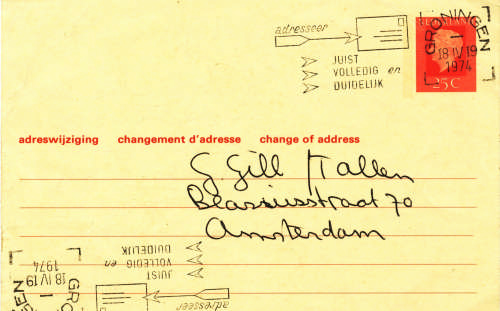 adresseer
JUIST
VOLLEDIG en
DUIDELIJK
GRONINGEN
18 IV 19
1974
25C
adreswijziging changement d'adresse change of address
G. Gill Kallen
Blasiusstraat 70
Amsterdam
adresseer
JUIST
VOLLEDIG en
DUIDELIJK
18 IV 19
1974